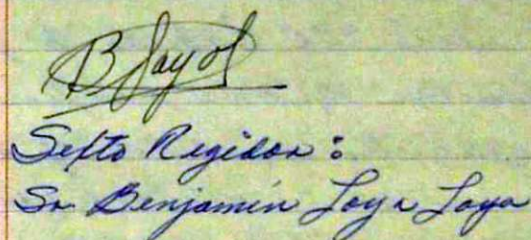 B Laya L
Sexto Regidor:
Sr Benjamín Loya Loya